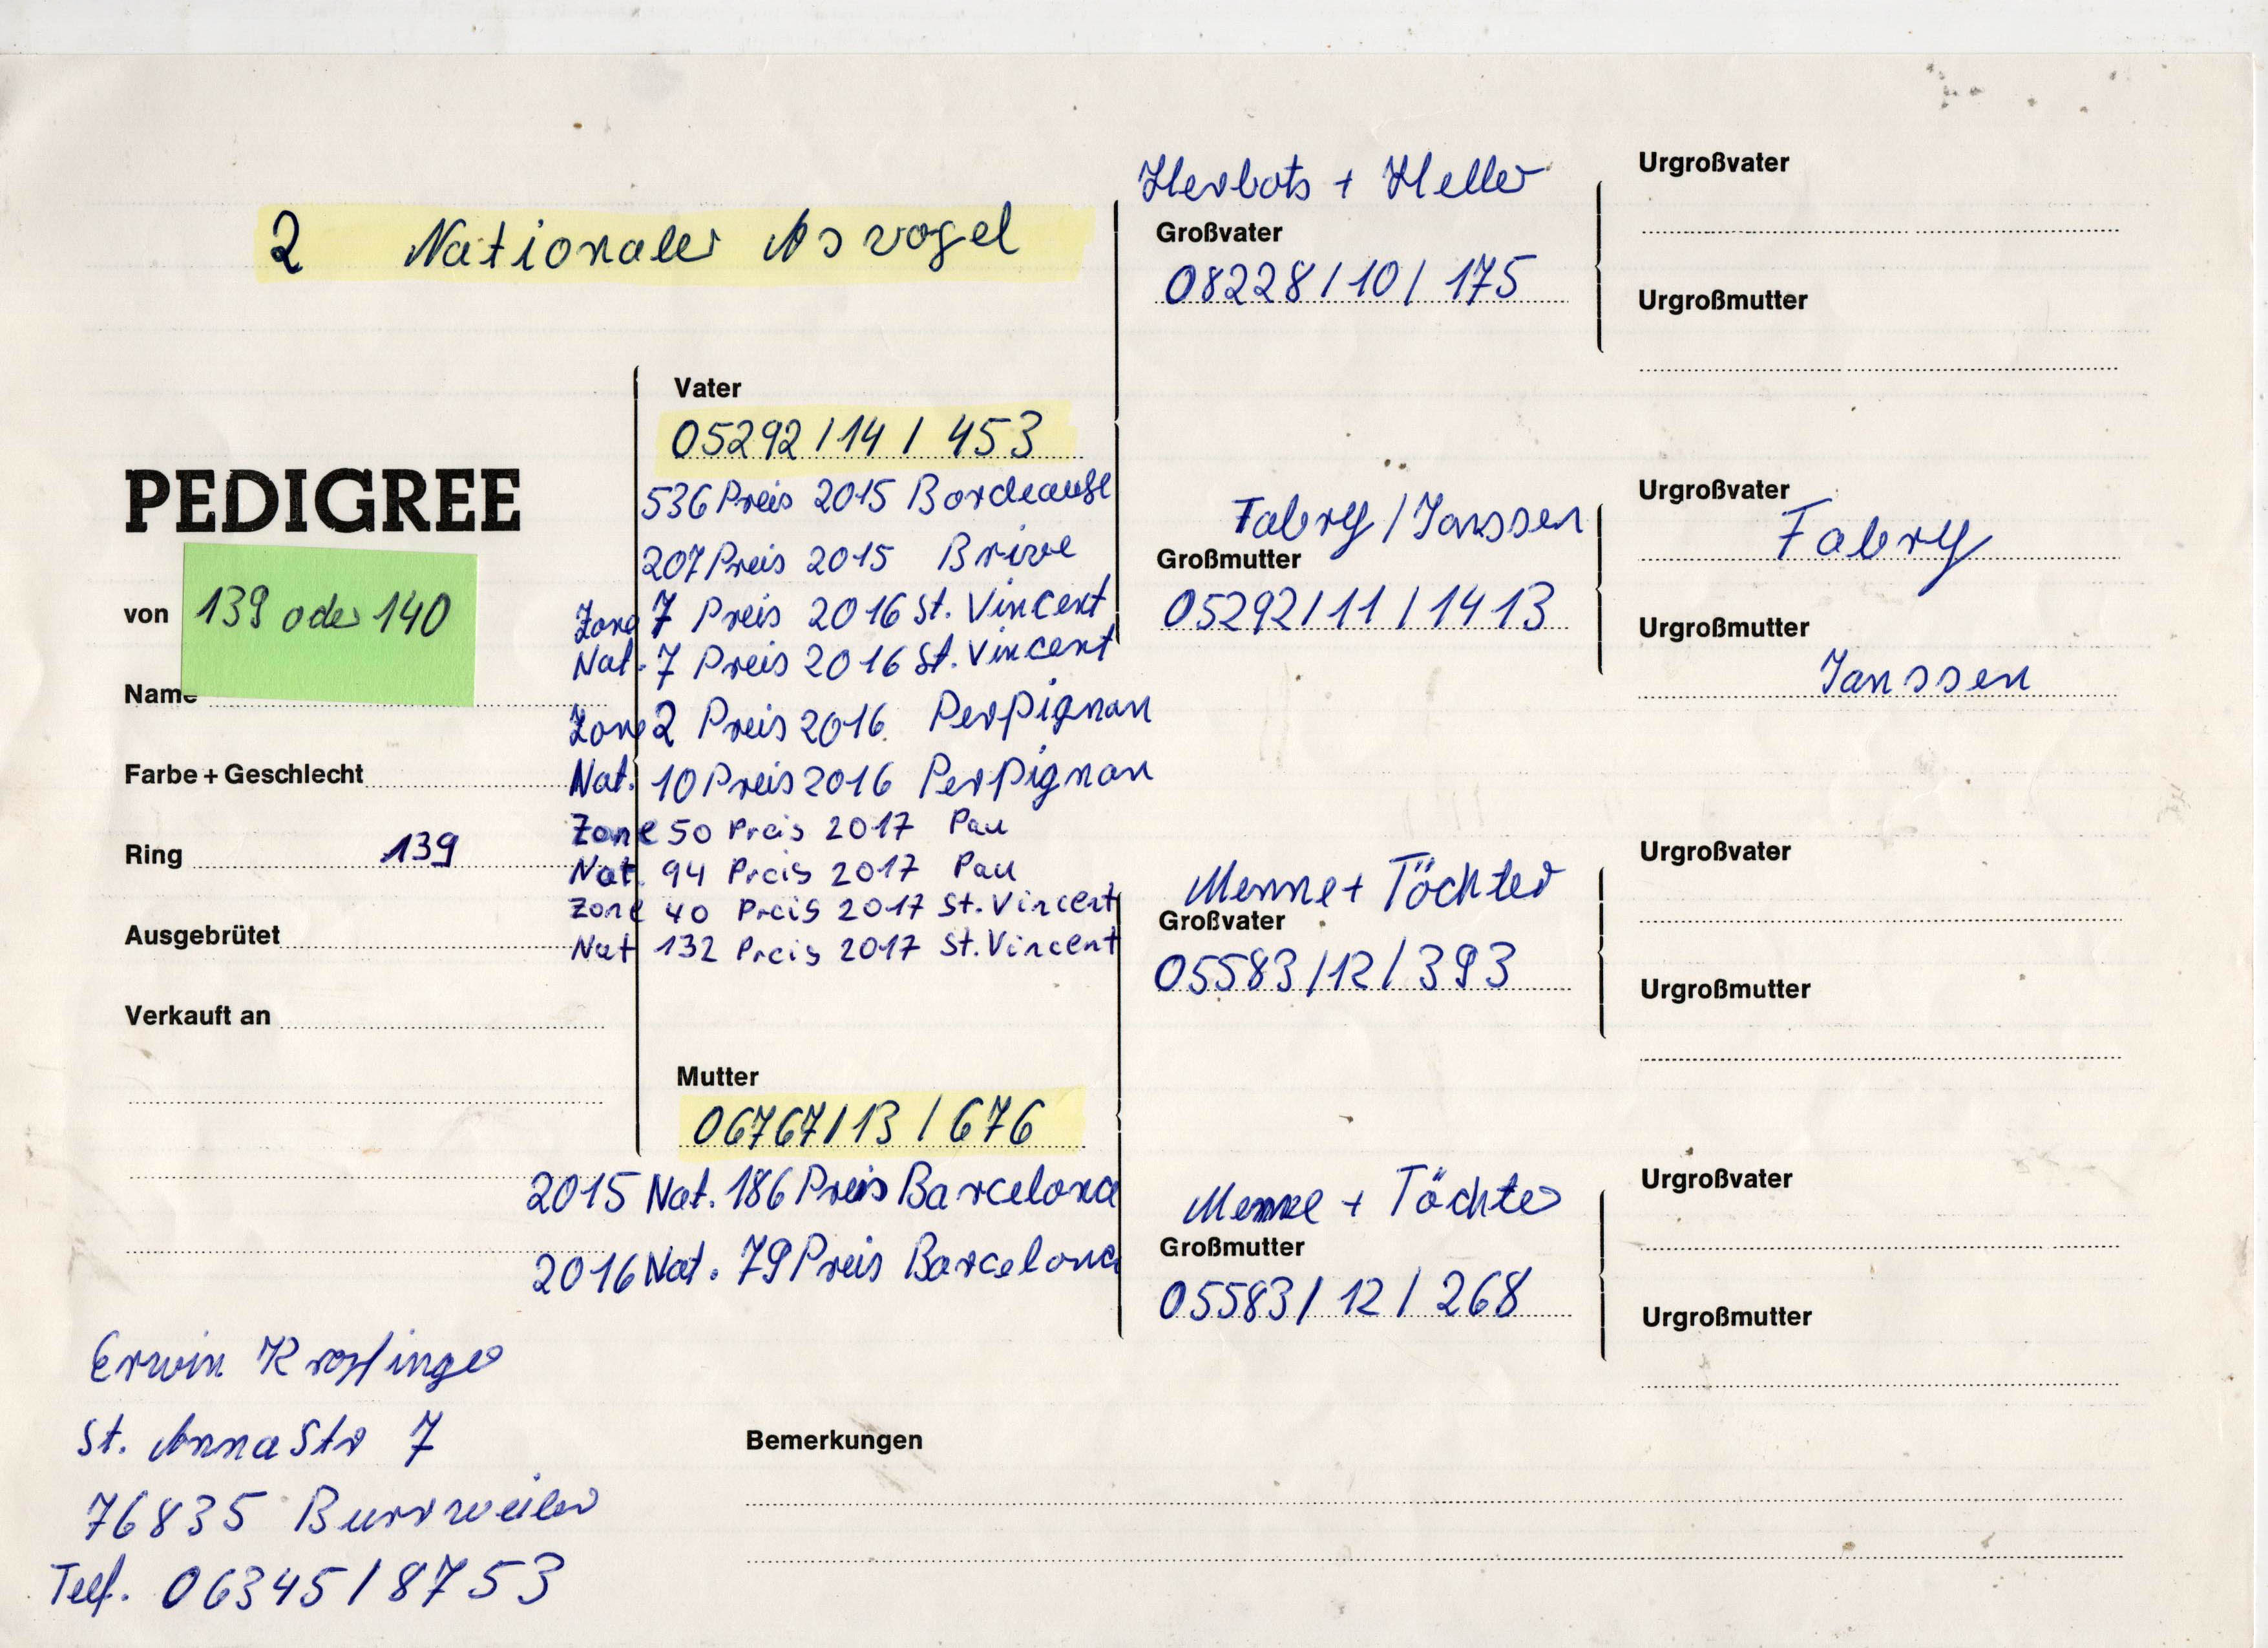 2 Nationaler Asvogel
PEDIGREE
von 139 oder 140
Name
Farbe + Geschlecht
Ring 139
Ausgebrütet
Verkauft an
Vater
05292/14/453
536 Preis 2015 Bordeauße
207 Preis 2015 Brive
Zone 7 Preis 2016 St. Vincent
Nat. 7 Preis 2016 St. Vincent
Zone 2 Preis 2016 Perpignan
Nat. 10 Preis 2016 Perpignan
Zone 50 Preis 2017 Pau
Nat. 94 Preis 2017 Pau
Zone 40 Preis 2017 St. Vincent
Nat 132 Preis 2017 St. Vincent
Mutter
06767/13/676
2015 Nat. 186 Preis Barcelona
2016 Nat. 79 Preis Barcelona
Herbots + Heller
Großvater
08228/10/175
Fabry/Janssen
Großmutter
05292/11/1413
Menne + Töchter
Großvater
05583/12/393
Menne + Töchter
Großmutter
05583/12/268
Urgroßvater
Urgroßmutter
Urgroßvater
Fabry
Urgroßmutter
Janssen
Urgroßvater
Urgroßmutter
Urgroßvater
Urgroßmutter
Erwin
St. Anna Str 7
76835 Burrweiler
Telf. 06345/8753
Bemerkungen